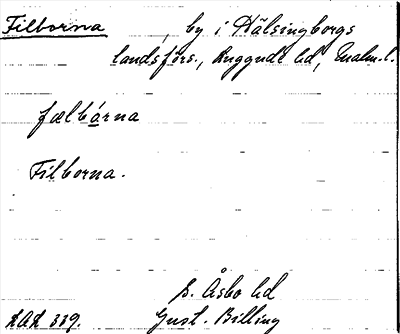 Filborna, by i Hälsingborgs
landsförs., Luggude hd, Malm. l.
fælbárna
Filborna.
s. Åsbo hd
LAL 339. Gust. Billing